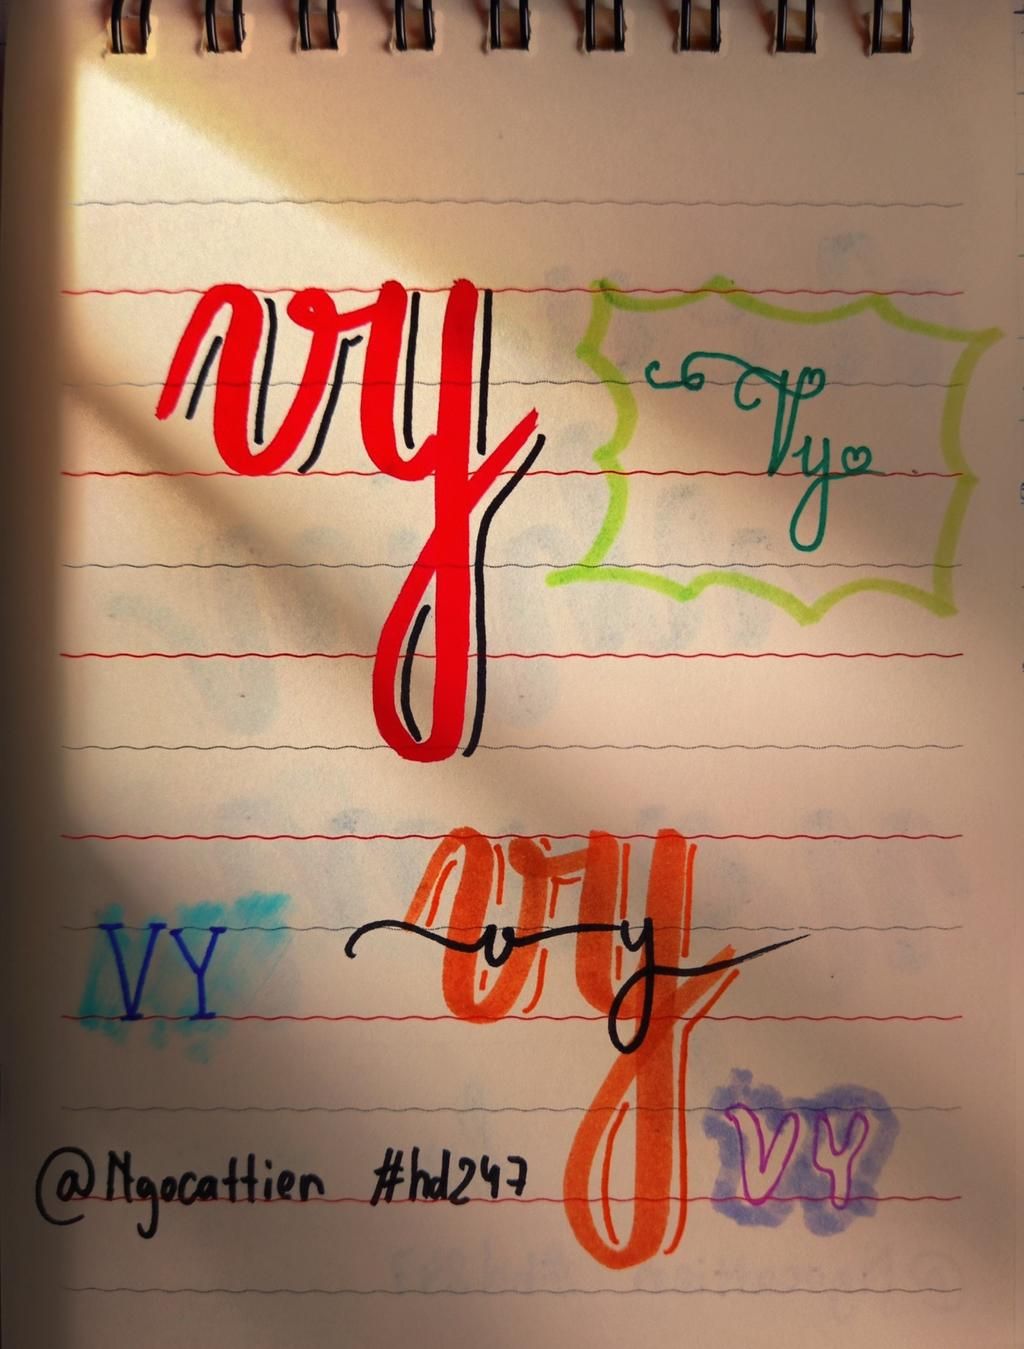 vy
Vy
vy
vy
VY
VY
@Ngocattien #hd247